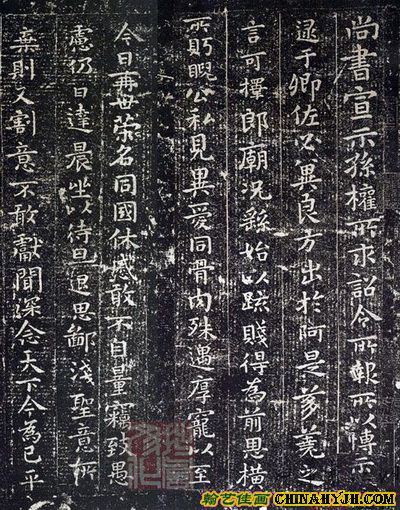 尚書宣示孫權所求詔令所報所以博示
逮于卿佐必冀良方出於阿是芻蕘之
言可擇郎廟況繇始以疏賤得為前恩橫
所眖睨公私見異愛同骨肉殊遇厚寵以至
今日再世榮名同國休慼敢不自量竊致愚
慮仍日達晨坐以待旦退思鄙淺聖意所
棄則又割意不敢獻聞深念天下今為已平
翰艺佳画 CHINAHYJH.COM